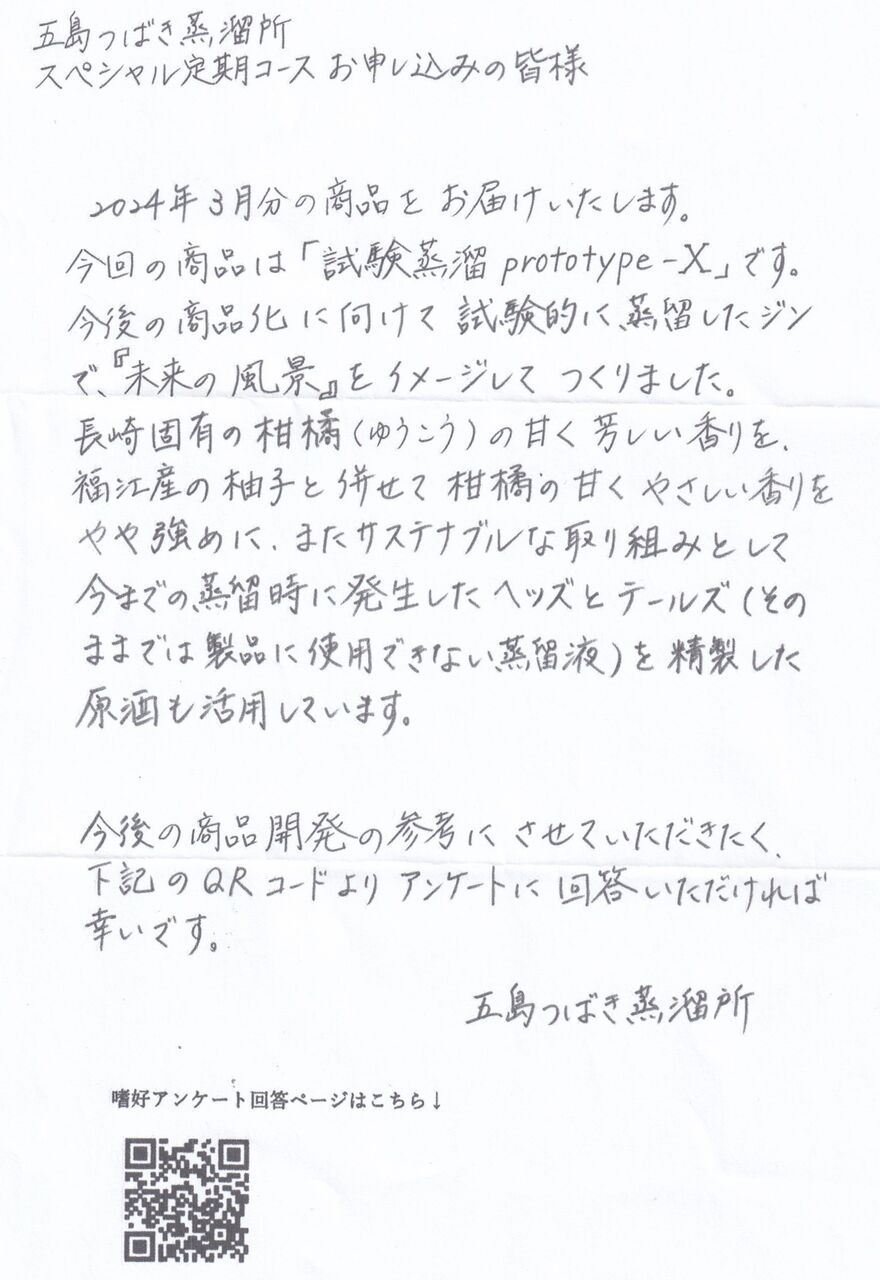 五島つばき蒸溜所
スペシャル定期コース お申し込みの皆様
2024年3月分の商品をお届けいたします。
今回の商品は「試験蒸溜 prototype-X」です。
今後の商品化に向けて試験的に蒸留したジン
で、『未来の風景』をイメージしてつくりました。
長崎固有の柑橘(ゆうこう)の甘く芳しい香りを、
福江産の柚子と併せて柑橘の甘くやさしい香りを
やや強めに、またサステナブルな取り組みとして
今までの蒸留時に発生したヘッズとテールズ(その
ままでは製品に使用できない蒸留液)を精製した
原酒も活用しています。
今後の商品開発の参考にさせていただきたく、
下記のQRコードよりアンケートに回答いただければ
幸いです。
五島つばき蒸溜所
嗜好アンケート回答ページはこちら↓